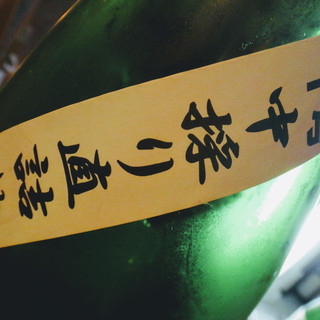 中採り直詰